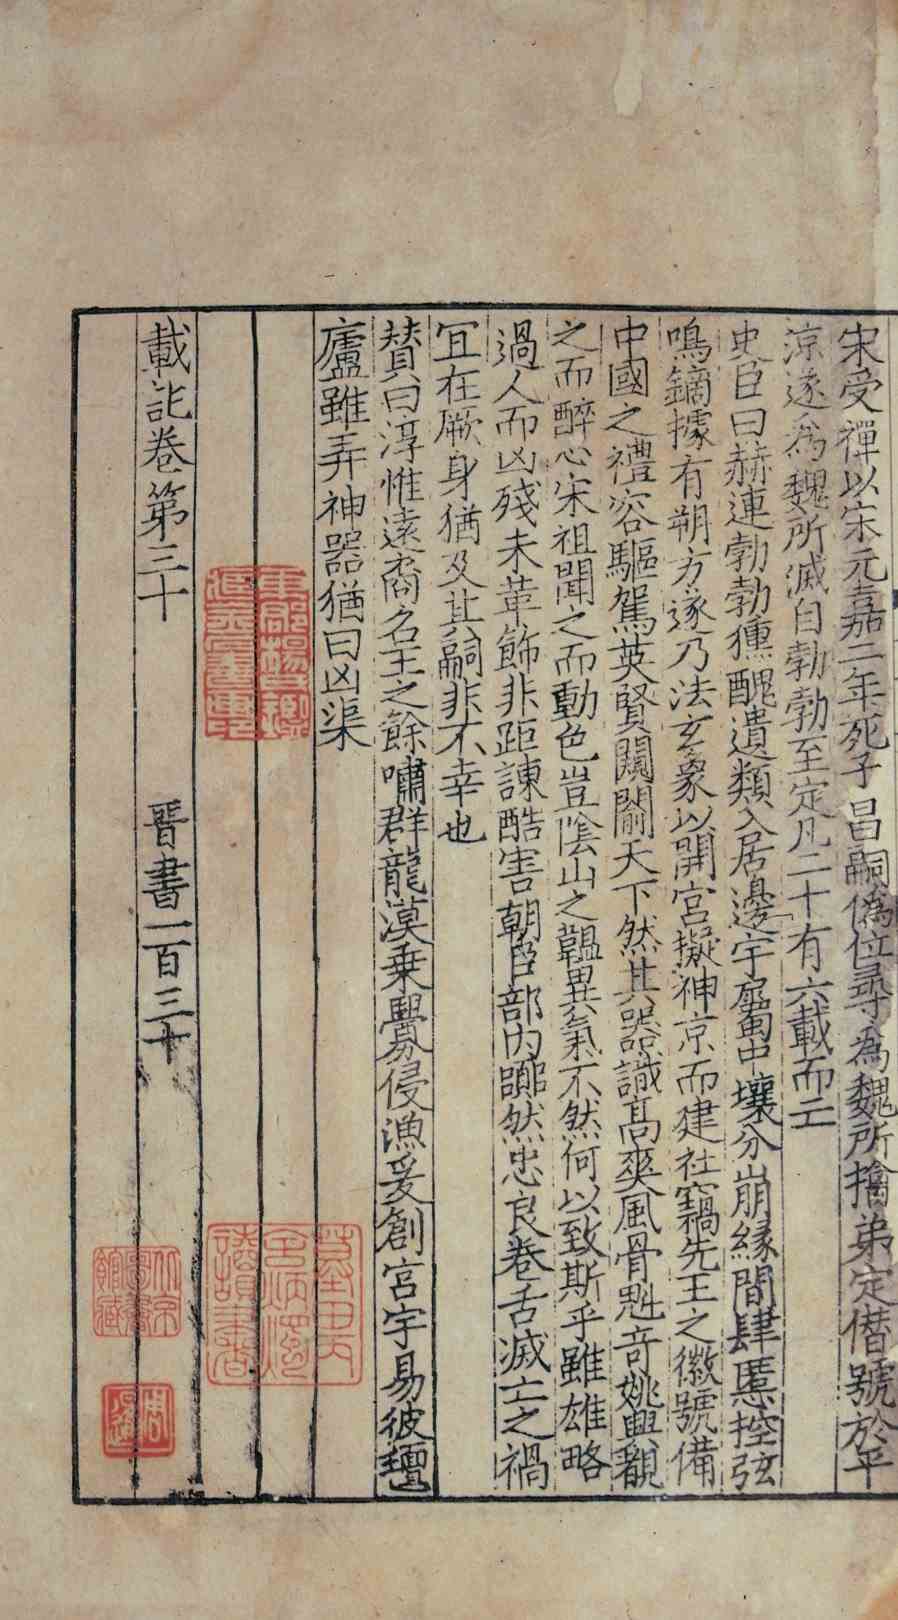 宋受禪以宋元嘉二年死子昌嗣僞位尋為魏所擒弟定僣號於平
涼遂為魏所滅自勃勃至定凡二十有六載而亡
史臣曰赫連勃勃獯醜遺類入居邊宇屬中壤分崩緣間肆慝控弦
鳴鏑據有朔方遂乃法玄象以開宮擬神京而建社竊先王之徽號備
中國之禮容驅駕英賢闚𨵦天下然其器識髙爽風骨魁竒姚興覩
之而醉心宋祖聞之而動色豈陰山之韞異氣不然何以致斯乎雖雄略
過人而凶殘未革飾非距諫酷害朝臣部内嚻然忠良卷舌滅亡之禍
冝在厥身猶及其嗣非不幸也
賛曰淳惟遠裔名王之餘嘯群龍漠乗釁侵漁爰創宮宇易彼氊
廬雖弄神器猶曰凶渠
載記卷第三十 晉書一百三十